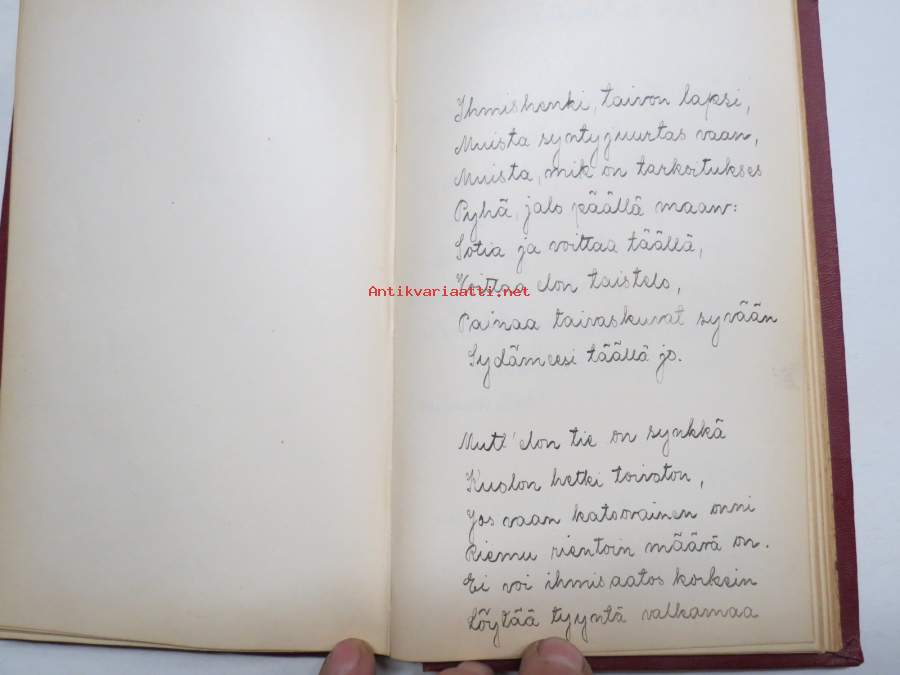 Ihmishenki, taivon lapsi,
Muista syntyjuurtas vaan,
Muista, mik on tarkoitukses
Pyhä, jalo päällä maan:
Sotia ja voittaa täällä,
Voittaa elon taistelo,
Antikvariaatti.net
Painaa taivaskuvat syvään
Sydämeesi täällä jo.
Mutt' elon tie on synkkä
Kuolon hetki toivoton,
Jos vaan katoovainen onni
Riemu rientoin määrä on.
Ei voi ihmisaatos korkein
Löytää tyyntä valkamaa